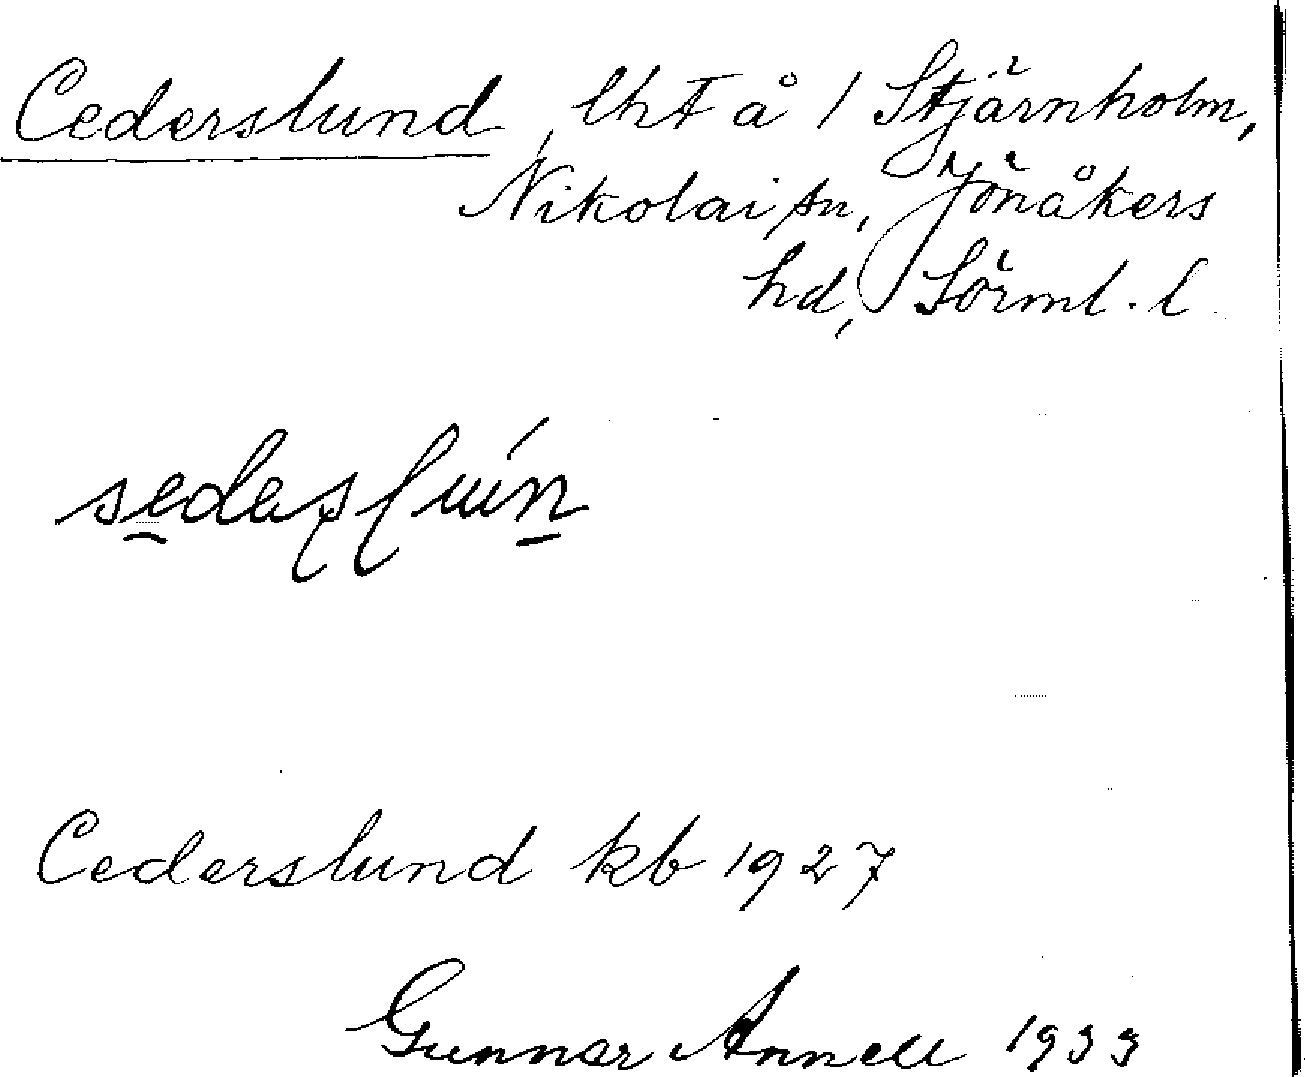 Cederslund, lht å 1 Stjärnholm,
Nikolai sn, Jönåkers
hd, Sörml. l
Cederslund kb 1927
Gunnar Annell 1933